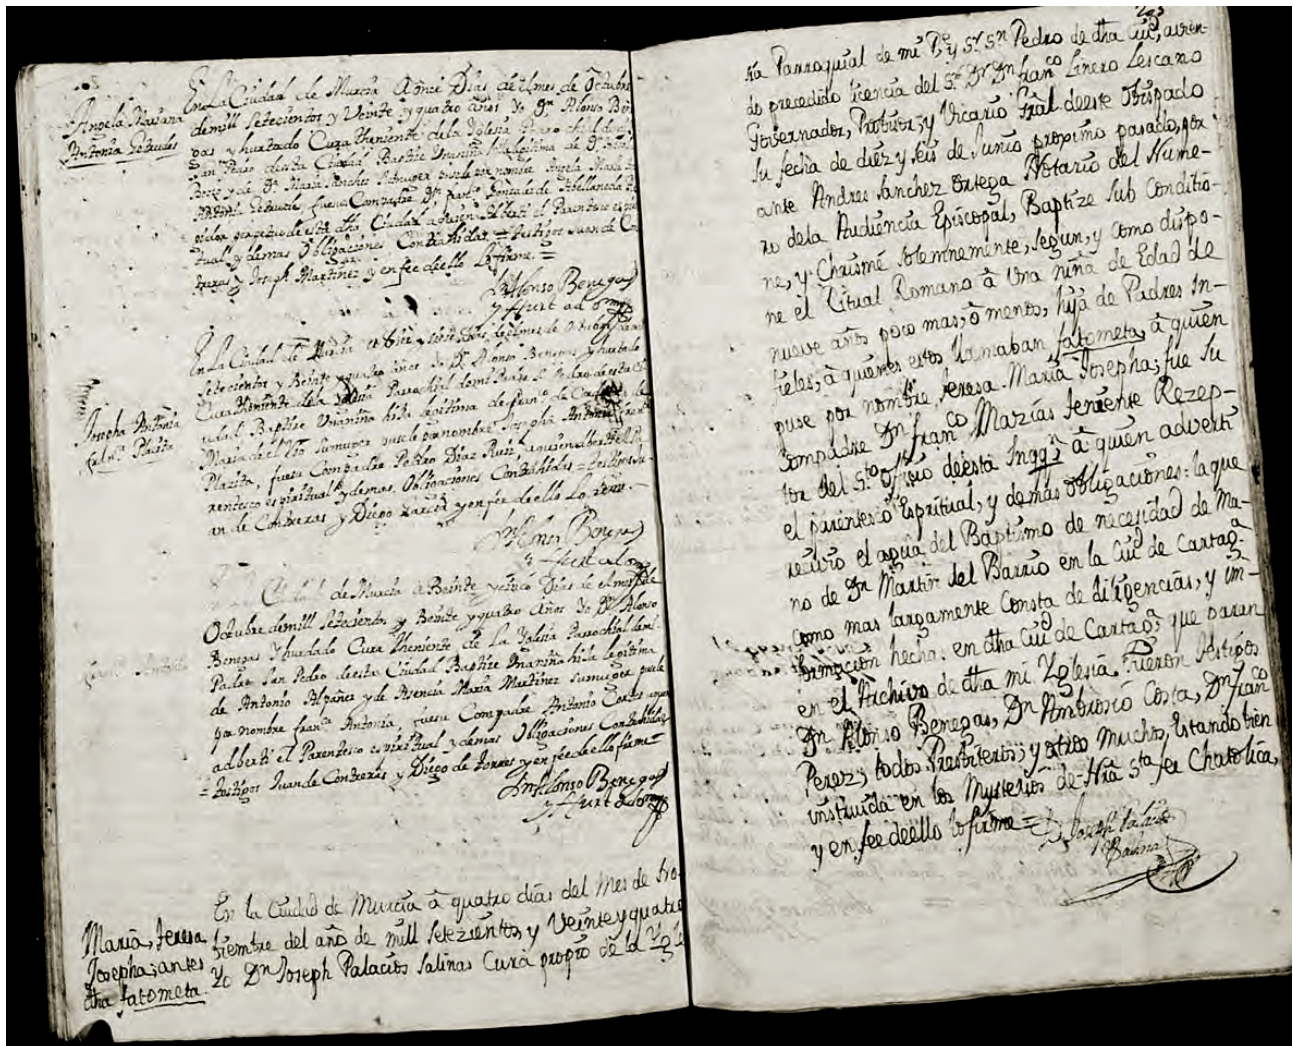 Angela Mariana
Antonia Getrudis
En La Ciudad de Murcia A onze Dias de el mes de Octubre
de mill Setecientos y Veinte y quatro años Yo Dn Alonso Bene
gas y hurtado Cura theniente de la Yglesia Parrochial de mi
San Pedro desta Ciudad Baptize Unaniña hija legitima de Dn
y de Da Maria Sanches puse le por nombre Angela Maria
Antonia Getrudis, fue su Compadre Dn franco Gonzales de Abellaneda
perpetuo de esta dha Ciudad a quien Adberti el Parentesco espiri
tual y demas Obligaciones Contrahidas = testigos Juan de Con
treras y Joseph Martinez y en fee de ello Lo firme =
Dn Alonso Benegas
y Hurtado
Josepha Antonia
Plazita
En La Ciudad de Murcia a Diez y siete Dias de el mes de Octubre
Setecientos y Beinte y quatro años Yo Dn Alonso Benegas y hurtado
Cura theniente de la Yglesia Parrochial de mi Padre Sn Pedro de esta Ci
udad Baptize Unaniña hija legitima de franco de
Maria de el Rio Su muger puse le por nombre Josepha Antonia
Plazita, fue su Compadre Pedro Diaz Ruiz, a quien adberti el Pa
rentesco espiritual y demas Obligaciones Contrahidas = testigos Ju
an de Contreras y Diego Garcia y en fee de ello Lo firme =
Dn Alonso Benegas
y Hurtado
Antonia
Ciudad de Murcia a Beinte y cinco Dias de el mes de
Octubre de mill Setecientos y Beinte y quatro Años Yo Dn Alonso
Benegas Y hurtado Cura theniente de La Yglesia Parrochial de mi
Padre San Pedro de esta Ciudad Baptize Unaniña hija legitima
de Antonio Alpañez y de Asencia Maria Martinez Su muger puse le
por nombre franca Antonia, fue su Compadre Antonio Cortes aquien
adberti el Parentesco espiritual y demas Obligaciones Contrahidas
= testigos Juan de Contreras y Diego de torres y en fee de ello firme =
Dn Alonso Benegas
y Hurtado
Maria, Teresa
Josepha; antes
dha fatometa.
En la Ciudad de Murcia à quatro dias del Mes de No-
biembre del año de mill setezientos, y Veinte y quatro
Yo Dn Joseph Palacios Salinas Cura propio de la Ygle
sia Parroquial de mi Pe y Sr Sn Pedro de dha Ciud, avien-
do precedido licencia del Sr Dr Dn franco Linero Lescano
Governador, Provisor, y Vicario Gral deeste Obispado
su fecha de diez y seis de Junio proximo pasado, por
ante Andres Sanchez Ortega Notario del Nume-
ro dela Audiencia Episcopal, Baptize sub Conditio-
ne, y Chrismé solemnemente, segun, y como dispo-
ne el Ritual Romano à Una niña de Edad de
nueve años poco mas, ò menos, hija de Padres In-
fieles, à quienes estos llamaban fatometa, à quien
puse por nombre, teresa. Maria Josepha; fue su
Compadre Dn franco Mazias teniente Rezep-
tor del Sto oficio deesta Inqqn à quien adverti
el parentesco Espiritual, y demàs obligaciones: la que
recivio el agua del Baptismo de necesidad de Ma-
no de Dn Martin del Barrio en la Ciud de Cartaga
como mas largamente consta de diligencias, y in-
formacion hecha en dha Ciud de Cartaga, que paran
en el Archivo de dha mi Yglesia. Fueron testigos
Dn Alonso Benegas, Dn Ambrosio Costa, Dn franco
Perez; todos Presbiteros; y otros Muchos, Estando bien
instruida en los Mysterios de Nra Sta fee Chatolica,
y en fee deello lo firme =
Dn Joseph Palacios
Salinas